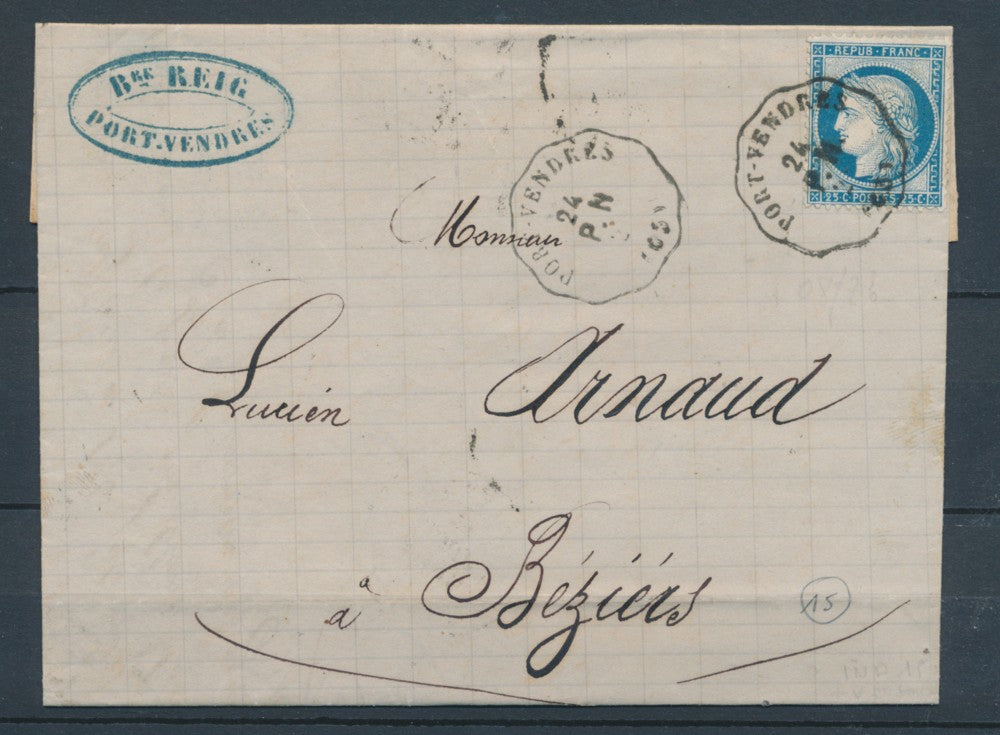 Bre REIG
PORT-VENDRES
REPUB·FRANC·
25 C·POSTES·25 C
PORT-VENDRES
24
PORT-VENDRES
24
P. N
Monsieur
Lucien Arnaud
à Béziérs
15